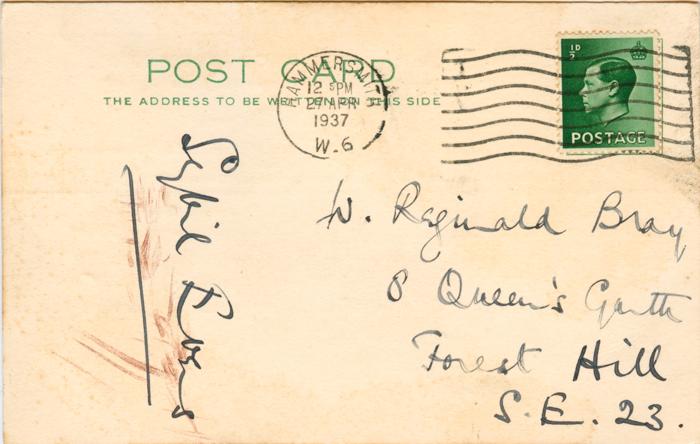 POST CARD
THE ADDRESS TO BE WRITTEN ON THIS SIDE
HAMMERSMITH
12 15 PM
27 APR
1937
W.6
½D
POSTAGE
W. Reginald Bray
8 Queen's Garth
Forest Hill
S.E. 23.
Sybil Evans